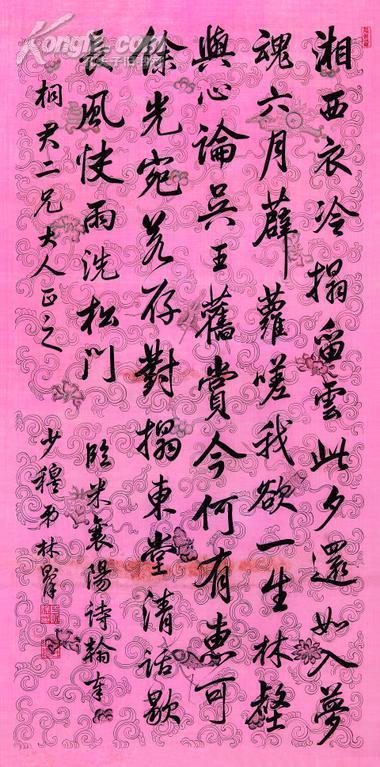 Kongfz.com
湘西衣冷搨留雲此夕還如入夢
魂六月薜蘿嗟我欲一生林壑
與心論吳王舊賞今何有惠可
餘光宛若存對搨東堂清話歇
長風使雨洗松門 臨米襄陽詩翰奉
桐君二兄大人正之 少穆弟林